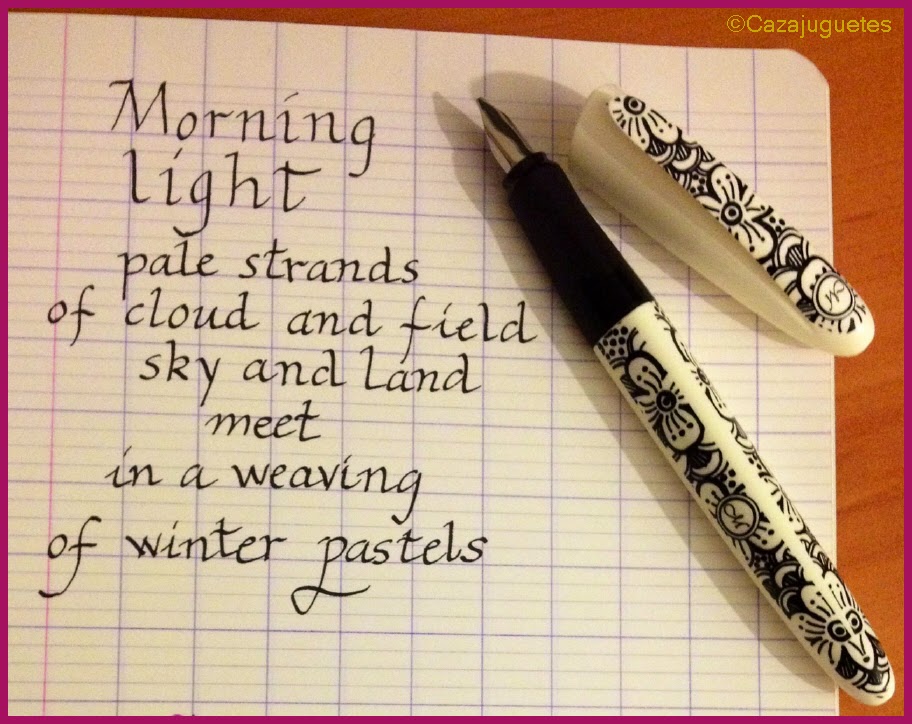 ©Cazajuguetes
Morning
light
pale strands
of cloud and field
sky and land
meet
in a weaving
of winter pastels